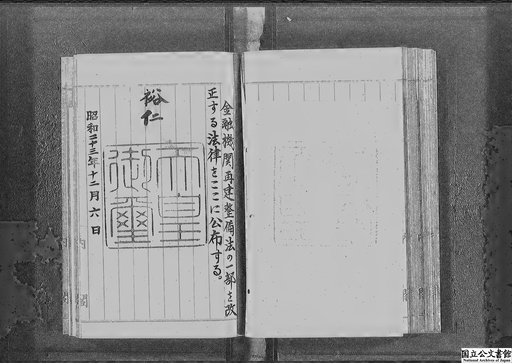 金融機関再建整備法の一部を改
正する法律をここに公布する。
裕仁
天皇
御璽
昭和二十三年十二月六日
内閣
国立公文書館
National Archives of Japan